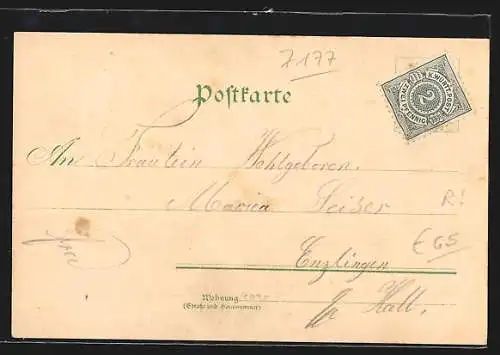 7177
Postkarte
K. WÜRTT. POST
2
PFENNIG
An Fräulein Wohlgeboren.
Maria Seiser
R!
€65
Enzlingen
Wohnung
(Straße und Hausnummer)
Hall,